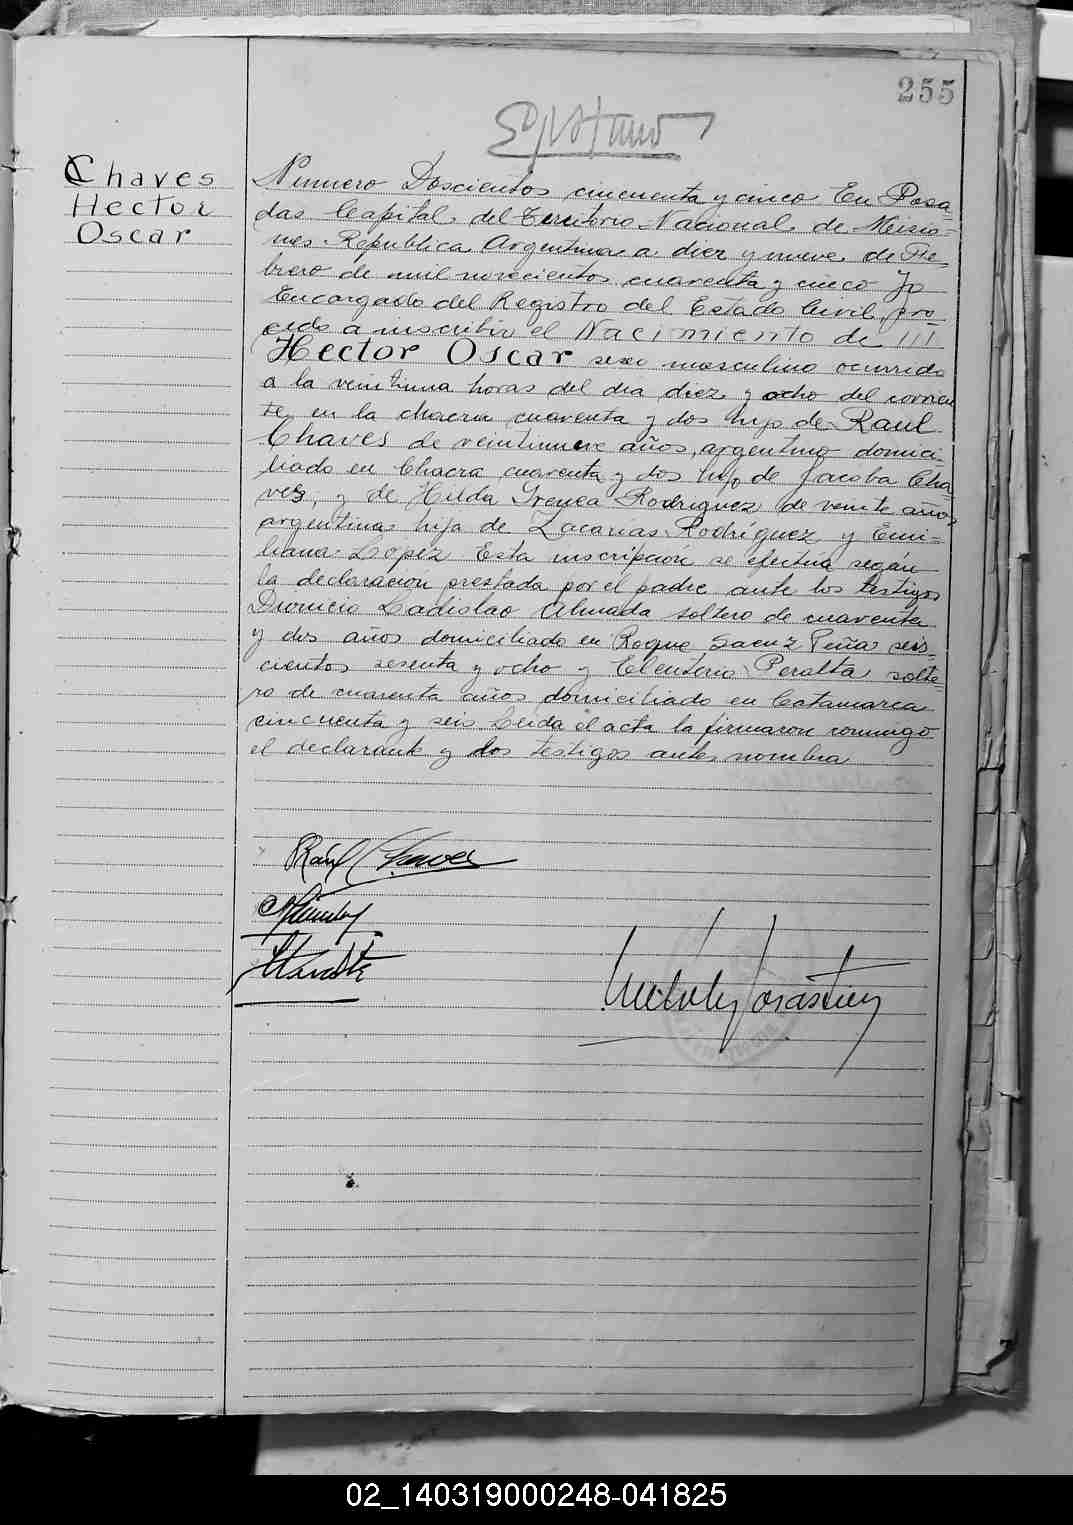 255
Chaves
Hector
Oscar
Numero Doscientos cincuenta y cinco En Posa
das Capital del Territorio Nacional de Misio=
nes Republica Argentina a diez y nueve de Fe=
brero de mil novecientos cuarenta y cinco Yo
Encargado del Registro del Estado Civil, pro=
cedo a inscribir el Nacimiento de
Hector Oscar sexo masculino ocurrido
a la veintiuna horas del dia diez y ocho del corrien
te en la chacra cuarenta y dos hijo de Raul
Chaves de veintinueve años, argentino domici=
liado en Chacra cuarenta y dos hijo de Jacoba Cha
ves, y de Hilda Irenea Rodriguez de veinte años
argentina hija de Zacarias Rodríguez y Emi=
liana Lopez Esta inscripción se efectúa según
la declaración prestada por el padre ante los testigos
Dionicio Ladislao Almada soltero de cuarenta
y dos años domiciliado en Roque Saenz Peña seis=
cientos sesenta y ocho y Eleuterio Peralta solte=
ro de cuarenta años domiciliado en Catamarca
cincuenta y seis Leida el acta la firmaron conmigo
el declarante y los testigos antes nombra
Raúl Chaves
02_140319000248-041825